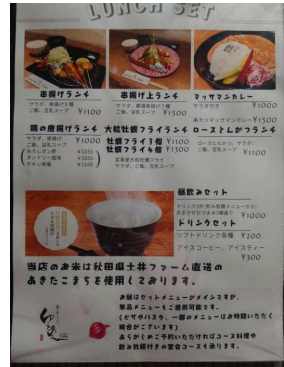 LUNCH SET
串揚げランチ
サラダ、串揚げ5種
ご飯、豆乳スープ
¥1100
串揚げ上ランチ
ご飯、豆乳スープ
¥1500
マッサマンカレー
サラダ付き
¥1000
串カツマッサマンカレー ¥1500
鶏の唐揚げランチ
サラダ、唐揚げ
ご飯、豆乳スープ
おろしポン酢 ¥1050
タンドリー風味 ¥1050
チキン南蛮 ¥1100
大粒牡蠣フライランチ
牡蠣フライ3個 ¥1100
牡蠣フライ4個 ¥1300
宮島産大粒牡蠣フライ
サラダ、ご飯、豆乳スープ
ロースとんかつランチ
ロースとんかつ、サラダ、
ご飯、豆乳スープ
¥1100
昼飲みセット
¥1000
ドリンクセット
ソフトドリンク各種 ¥200
アイスコーヒー、アイスティー
¥300
当店のお米は秋田県土井ファーム直送の
あきたこまちを使用しております。
お昼はセットメニューがメインですが、
単品メニューもご提供可能です。
(ピザやパスタ、一部のメニューはお時間いただく
場合がございます)
あらかじめご予約いただければコース料理や
飲み放題付きの宴会コースも承ります。